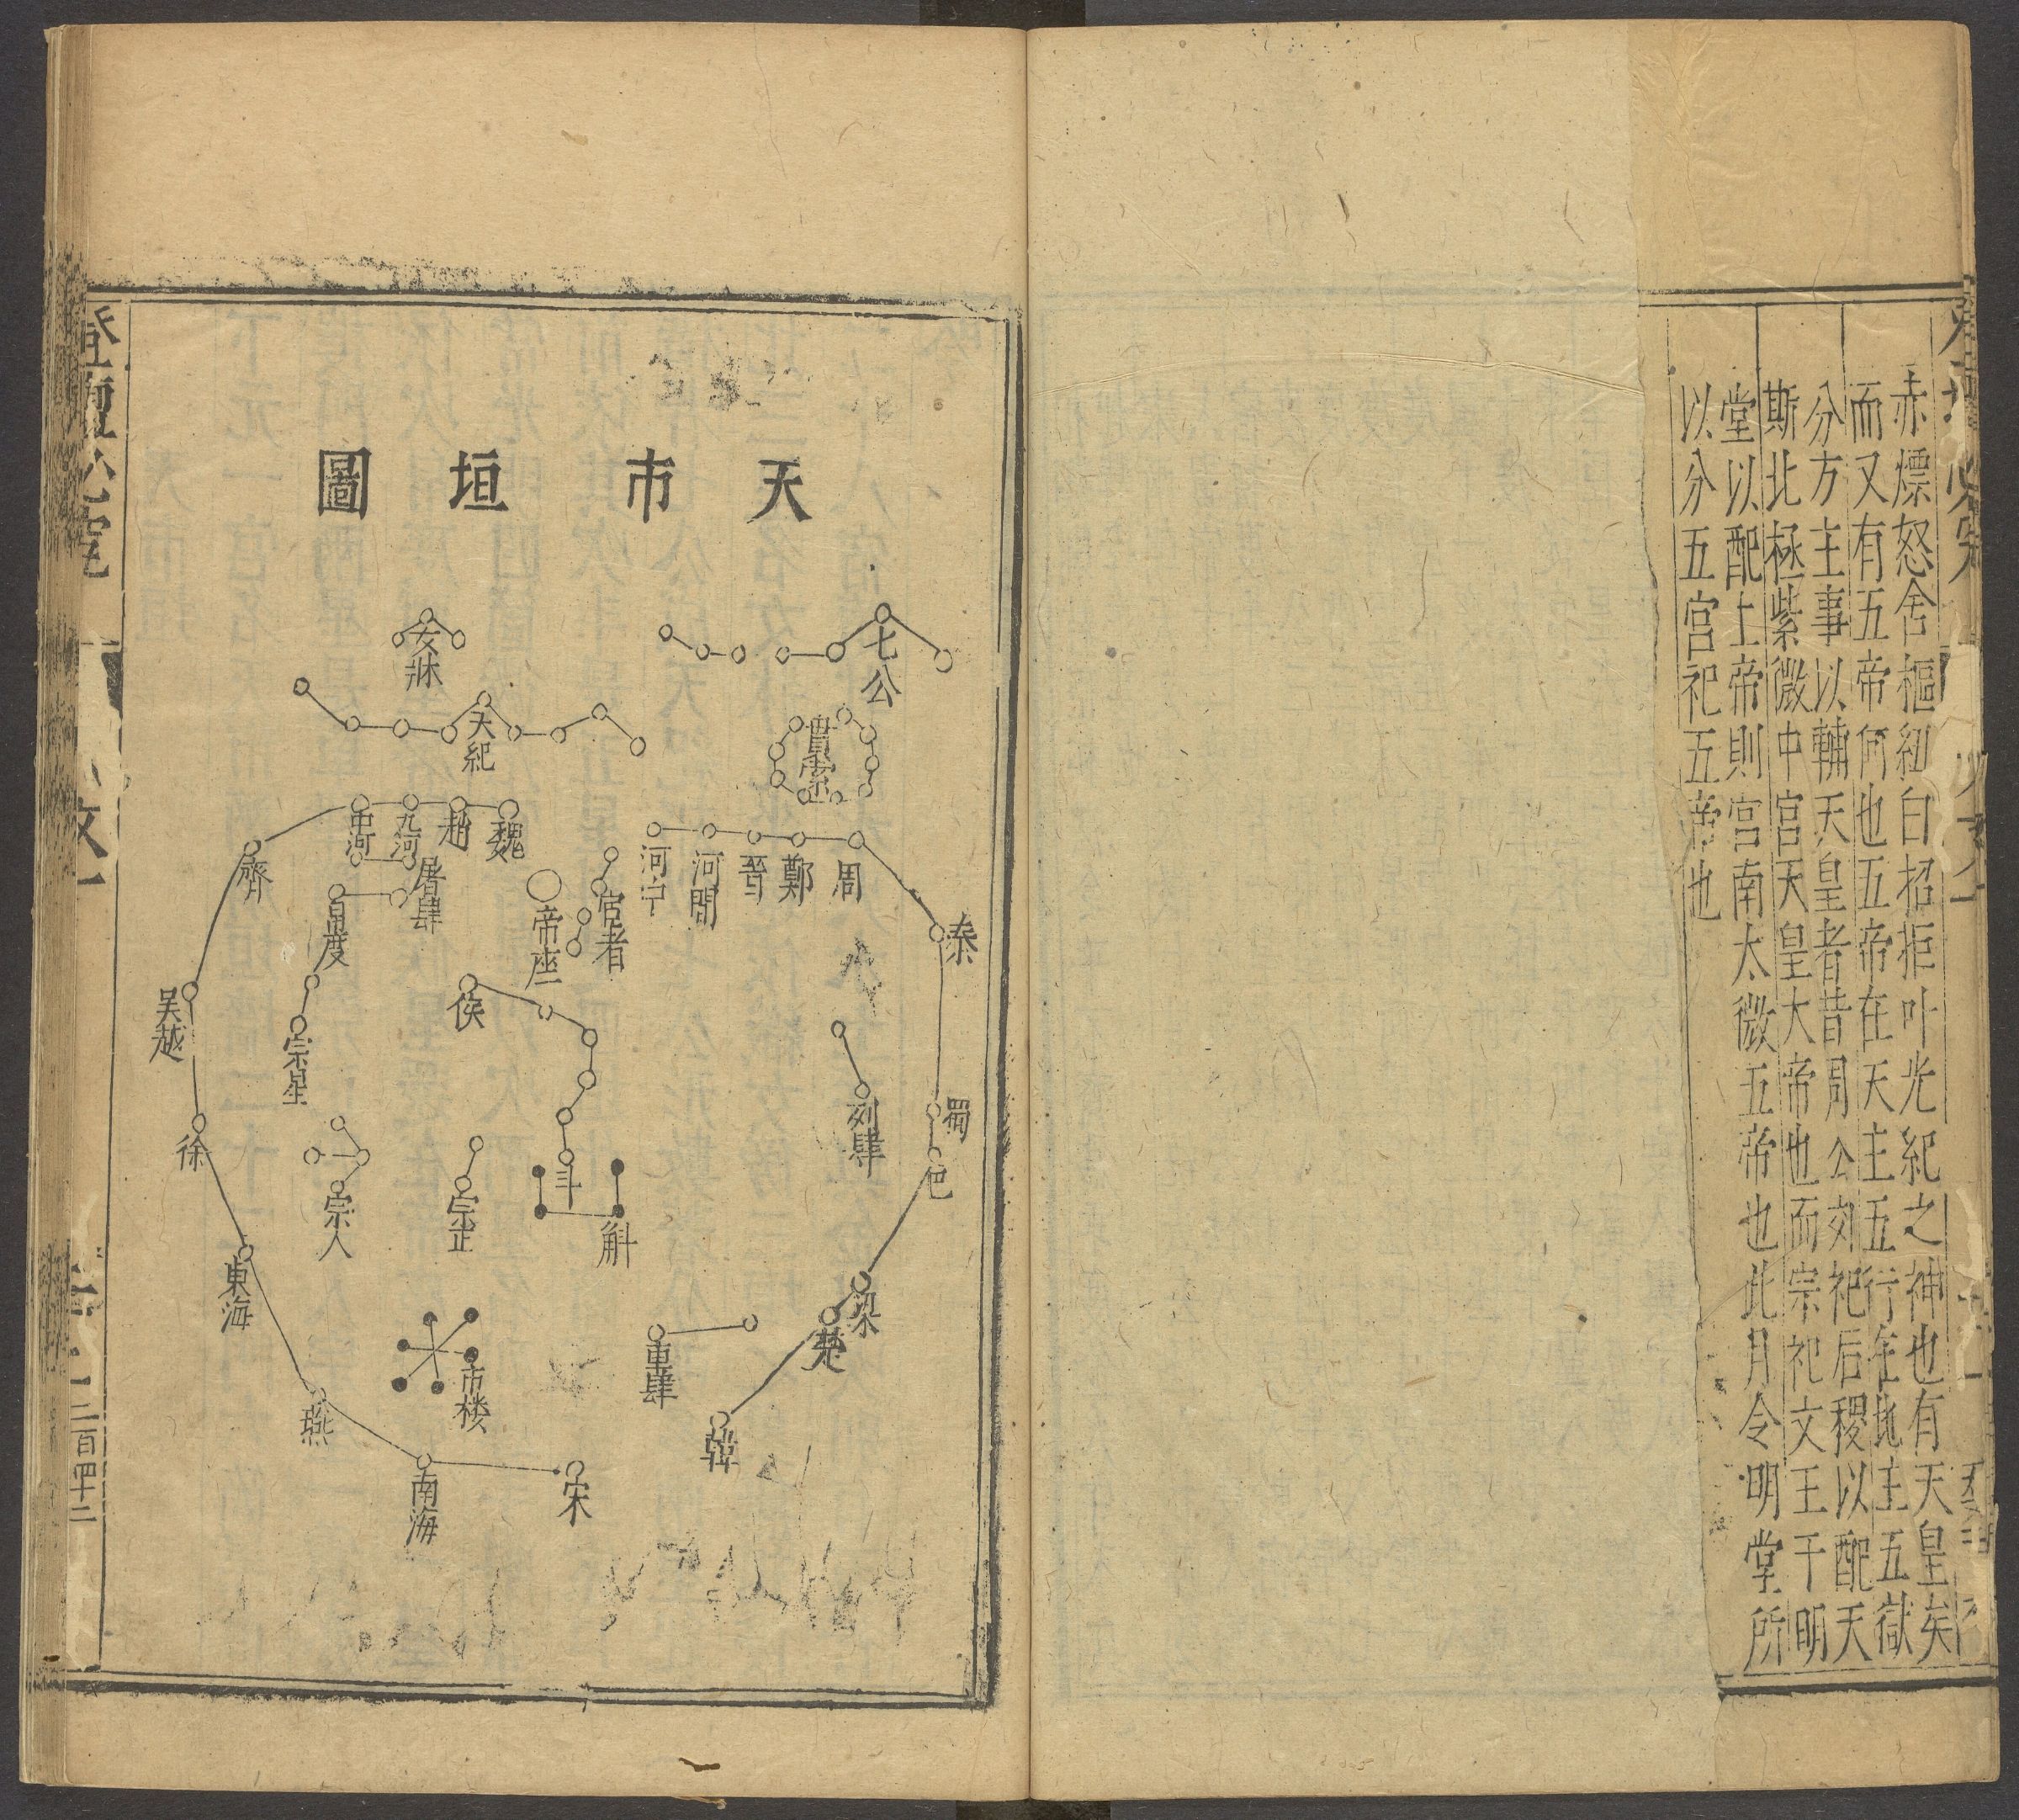 赤熛怒含樞紐白招拒叶光紀之神也有天皇矣
而又有五帝何也五帝在天主五行在地主五嶽
分方主事以輔天皇者昔周公郊祀后稷以配天
斯北極紫微中宮天皇大帝也而宗祀文王于明
堂以配上帝則宮南太微五帝也此月令明堂所
以分五宮祀五帝也
天市垣圖
七公
女牀
貫索
天紀
魏
趙
九河
中河
齊
吳越
徐
東海
燕
南海
宋
周
鄭
晉
河間
河中
秦
蜀
巴
梁
楚
韓
屠肆
帛度
宦者
帝座
侯
宗星
宗人
宗正
斗
斛
列肆
車肆
市楼
登壇必究
二百四十二